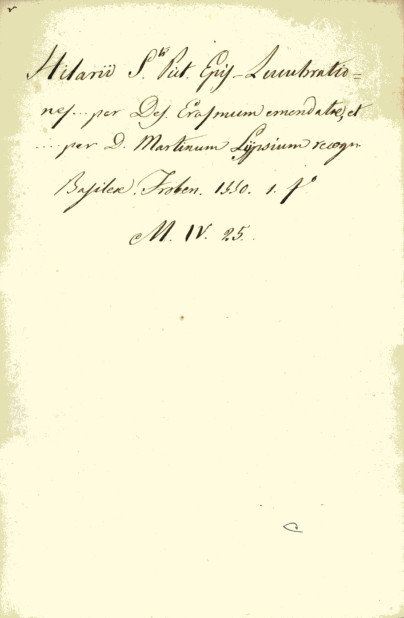 Hilarii S.ti Pict. Epis. Lucubratio=
nes... per Des. Erasmum emendatae, et
.... per D. Martinum Lypsium recogn.
Basileae. Froben. 1550. 1. f.o
M. IV. 25.